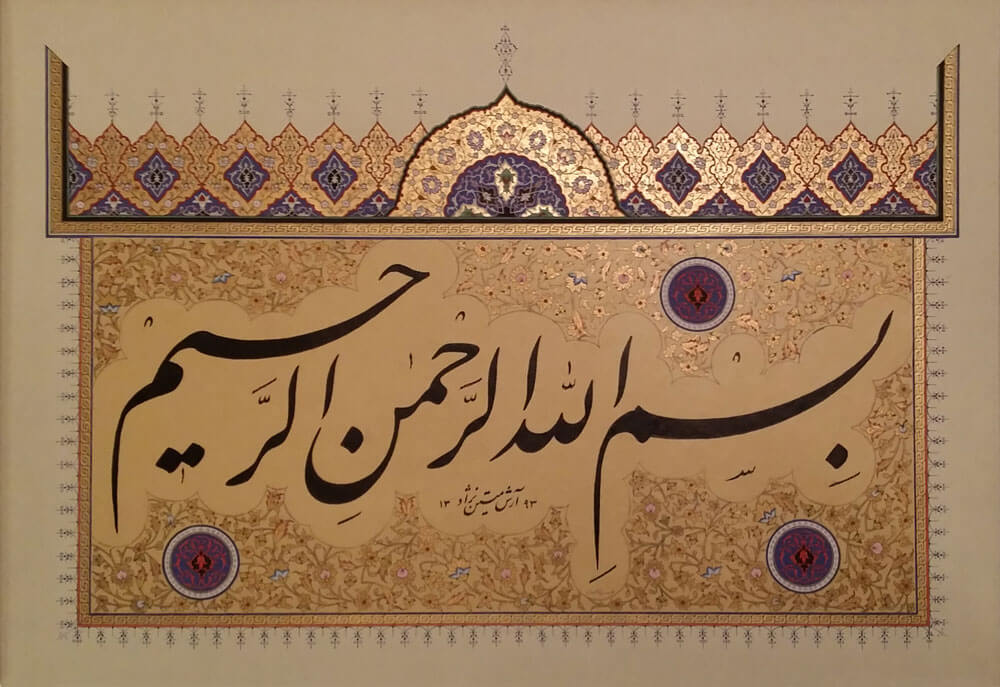 بِسْمِ اللهِ الرَّحْمٰنِ الرَّحیم
۱۳ آرش متین نژاد ۹۳